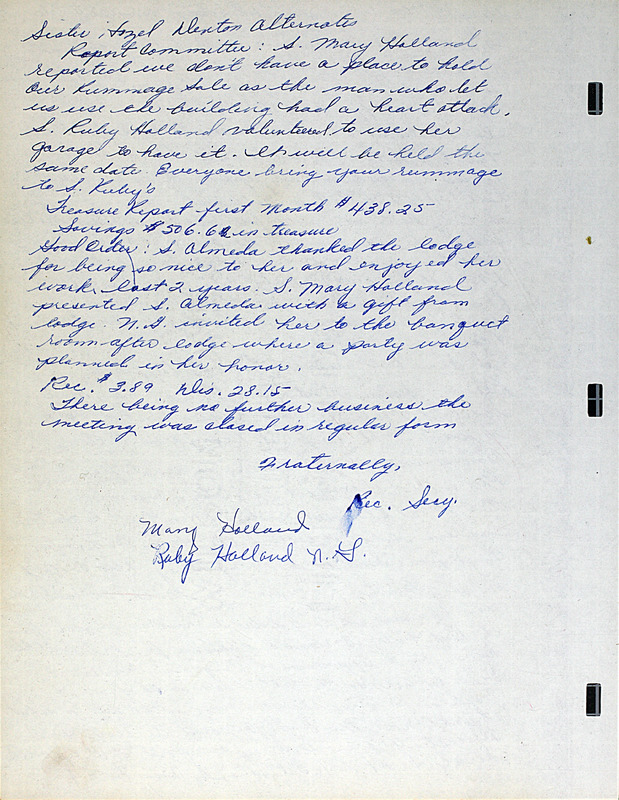 Sister, Hazel Denton Alternates
Report Committee: S. Mary Holland
reported we don't have a place to hold
our Rummage Sale as the man who let
us use the building had a heart attack.
S. Ruby Holland volunteered to use her
garage to have it. It will be held the
same date. Everyone bring your rummage
to S. Ruby's
Treasure Report - first Month $438.25
Savings $506.62 in treasure
Good Order: S. Almeda thanked the lodge
for being so nice to her and enjoyed her
work, last 2 years. S. Mary Holland
presented S. Almeda with a gift from
lodge. N.G. invited her to the banquet
room after lodge where a party was
planned in her honor.
Rec. $3.89 Dis. 28.15
There being no further business the
meeting was closed in regular form
Fraternally,
Rec. Secy.
Mary Holland
Ruby Holland N.G.